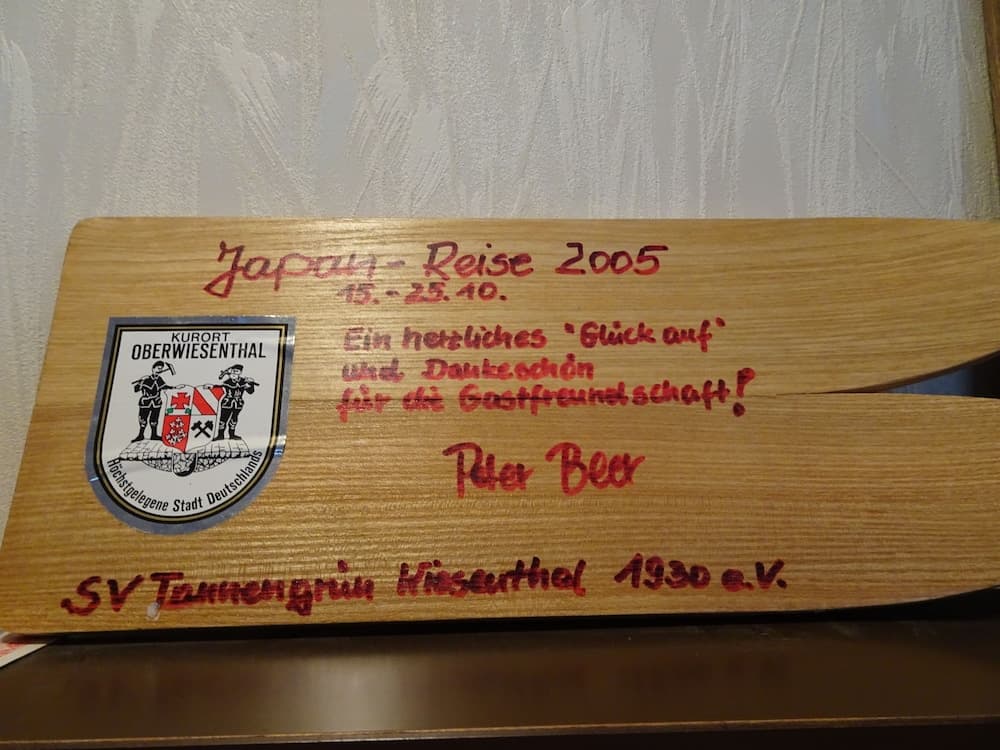 Japan - Reise 2005
15. - 25. 10.
Ein herzliches "Glück auf"
und Dankeschön
für die Gastfreundschaft!
Peter Beer
SV Tannengrün Wiesenthal 1930 e.V.
KURORT
OBERWIESENTHAL
Höchstgelegene Stadt Deutschlands